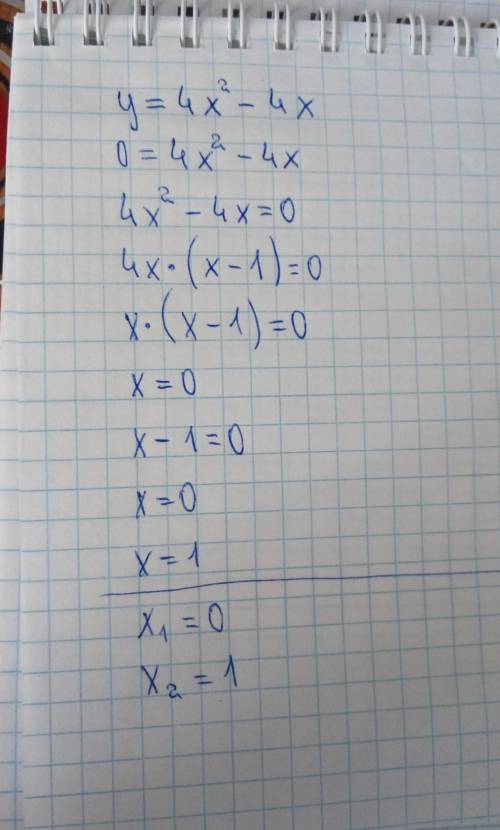 y = 4x² - 4x
0 = 4x² - 4x
4x² - 4x = 0
4x · (x - 1) = 0
x · (x - 1) = 0
x = 0
x - 1 = 0
x = 0
x = 1
x₁ = 0
x₂ = 1